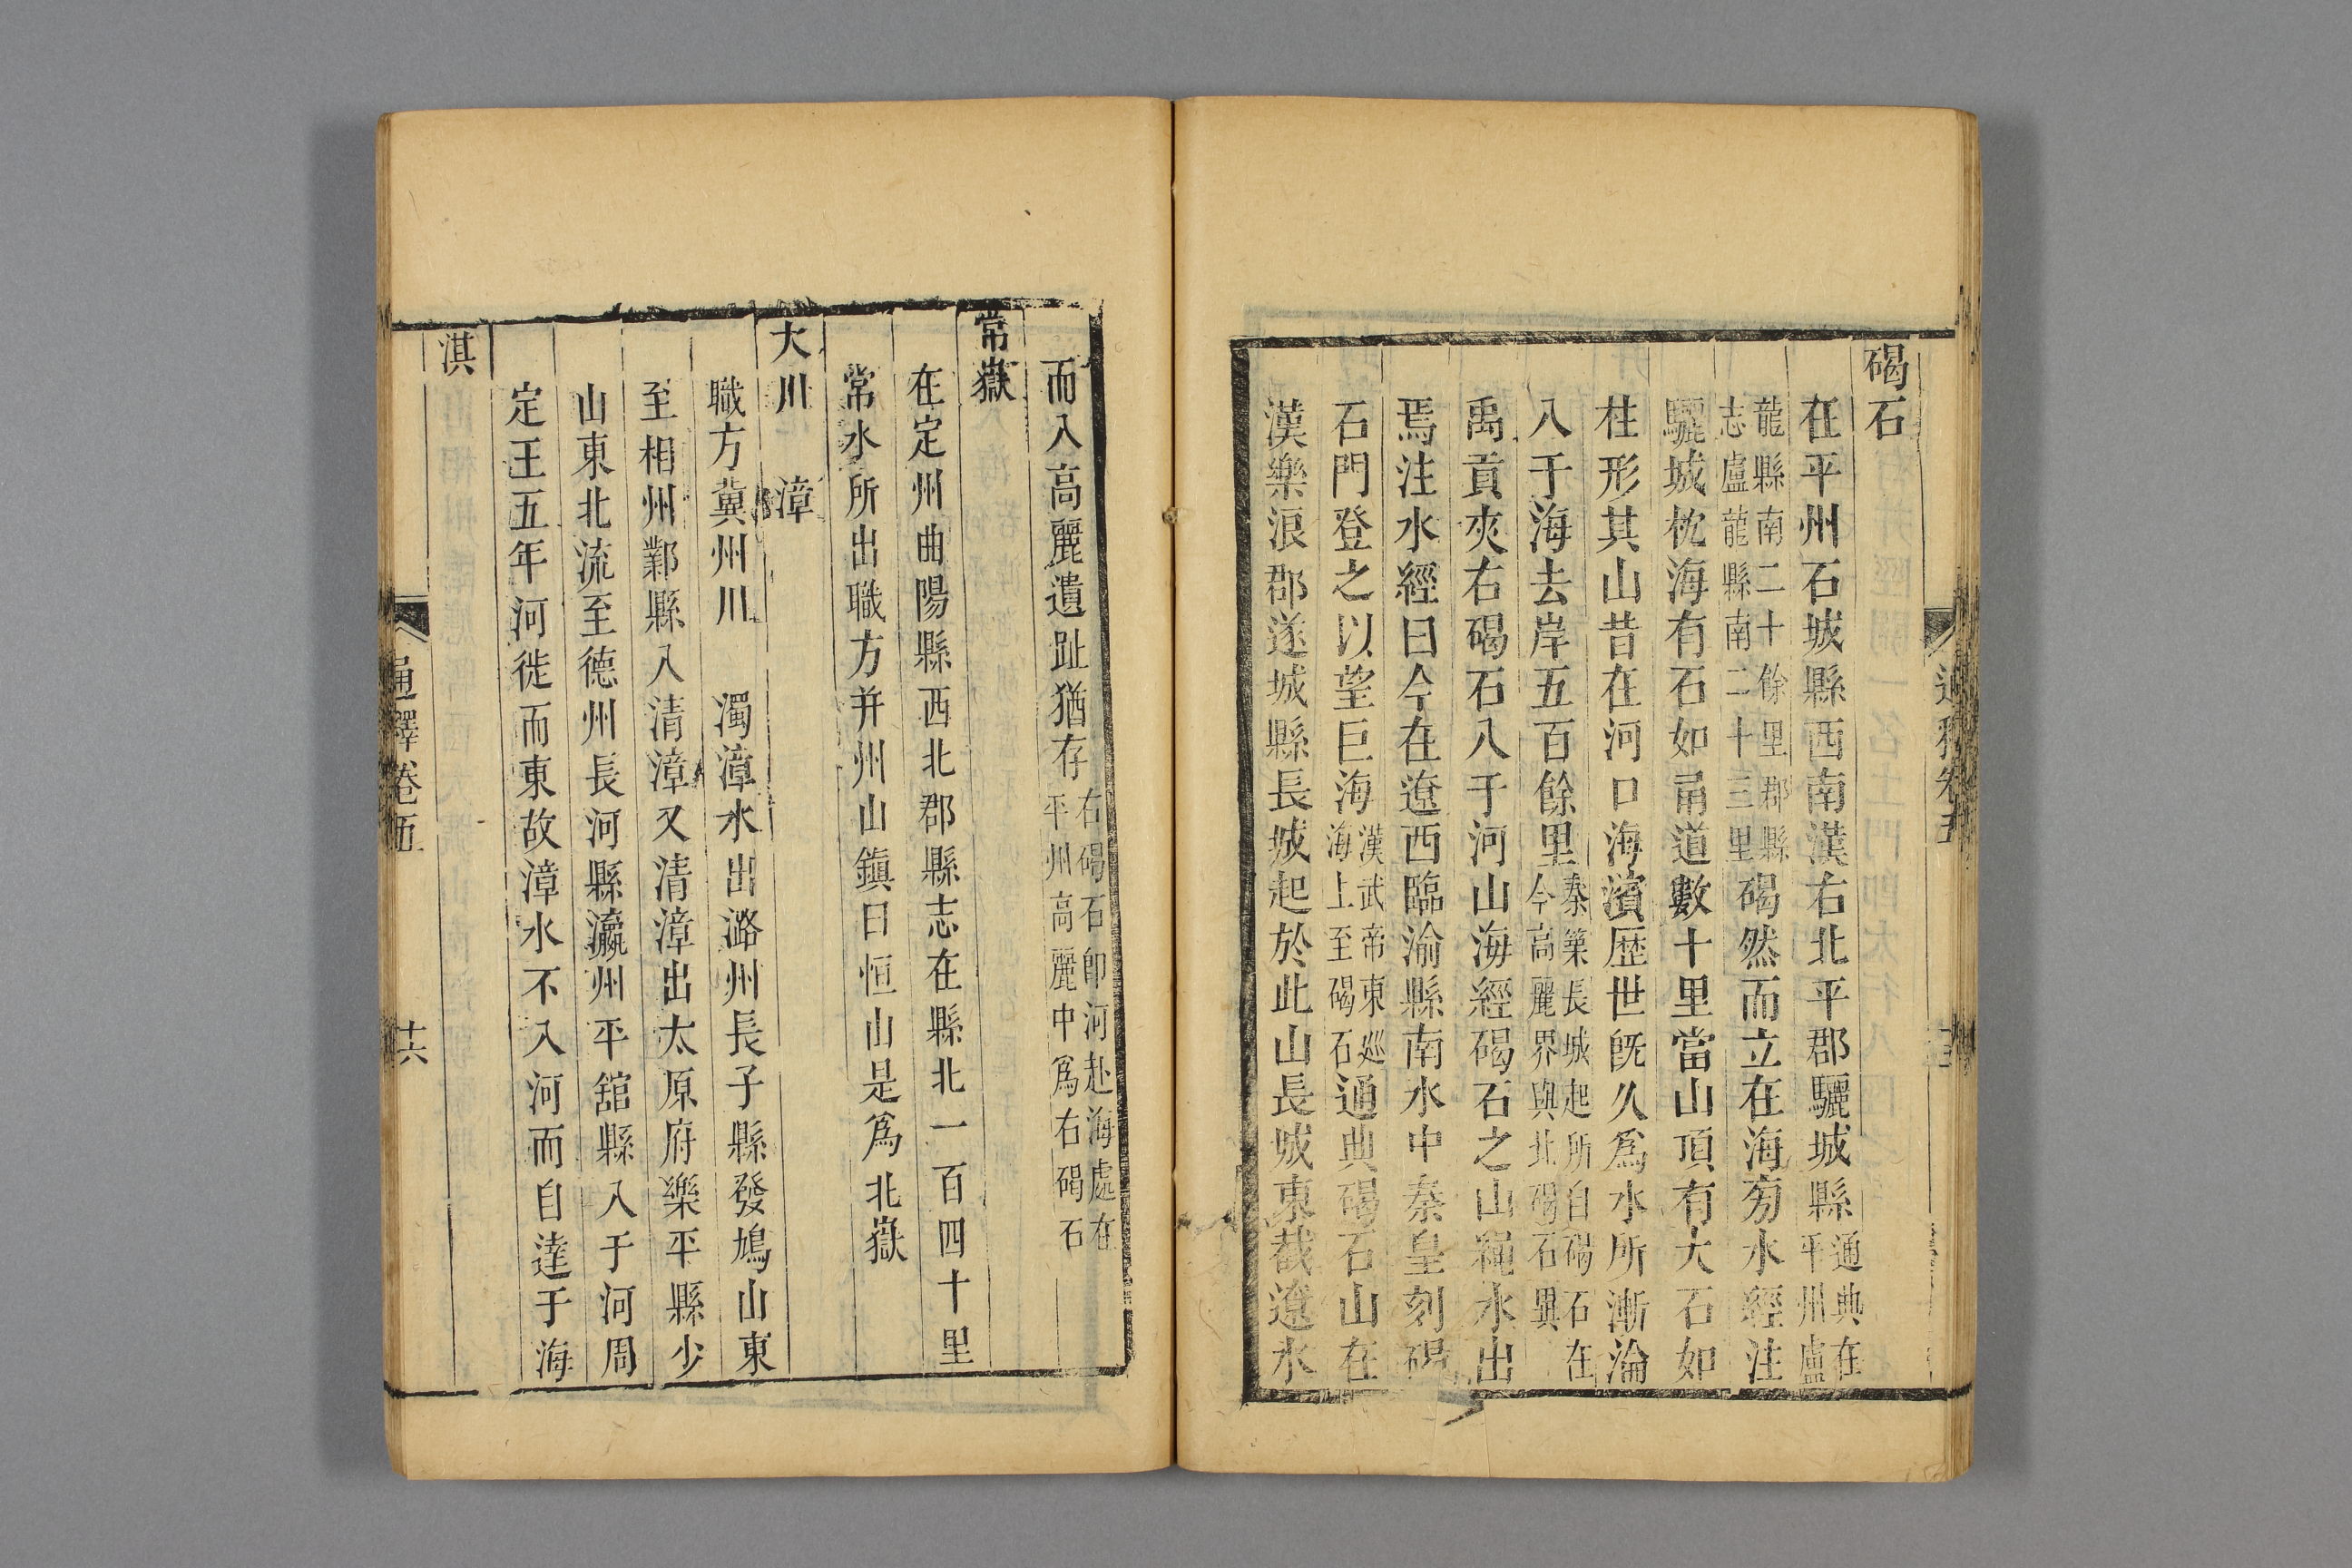 碣石
在平州石城縣西南漢右北平郡驪城縣通典在平州盧
龍縣南二十餘里郡縣志盧龍縣南二十三里碣然而立在海旁水經注
驪城枕海有石如甬道數十里當山頂有大石如
柱形其山昔在河口海濱歴世旣久為水所漸淪
入于海去岸五百餘里秦築長城起所自碣石在今高麗界與北碣石異
禹貢夾右碣石入于河山海經碣石之山繩水出
焉注水經曰今在遼西臨渝縣南水中秦皇刻碣
石門登之以望巨海漢武帝東廵海上至碣石通典碣石山在
漢樂浪郡遂城縣長城起於此山長城東截遼水
而入高麗遺趾猶存右碣石卽河赴海處在平州高麗中爲右碣石
常嶽
在定州曲陽縣西北郡縣志在縣北一百四十里
常水所出職方并州山鎭曰恒山是爲北嶽
大川 漳
職方冀州川 濁漳水出潞州長子縣發鳩山東
至相州鄴縣入清漳又清漳出太原府樂平縣少
山東北流至德州長河縣瀛州平舘縣入于河周
定王五年河徙而東故漳水不入河而自達于海
淇
通釋卷五
十六